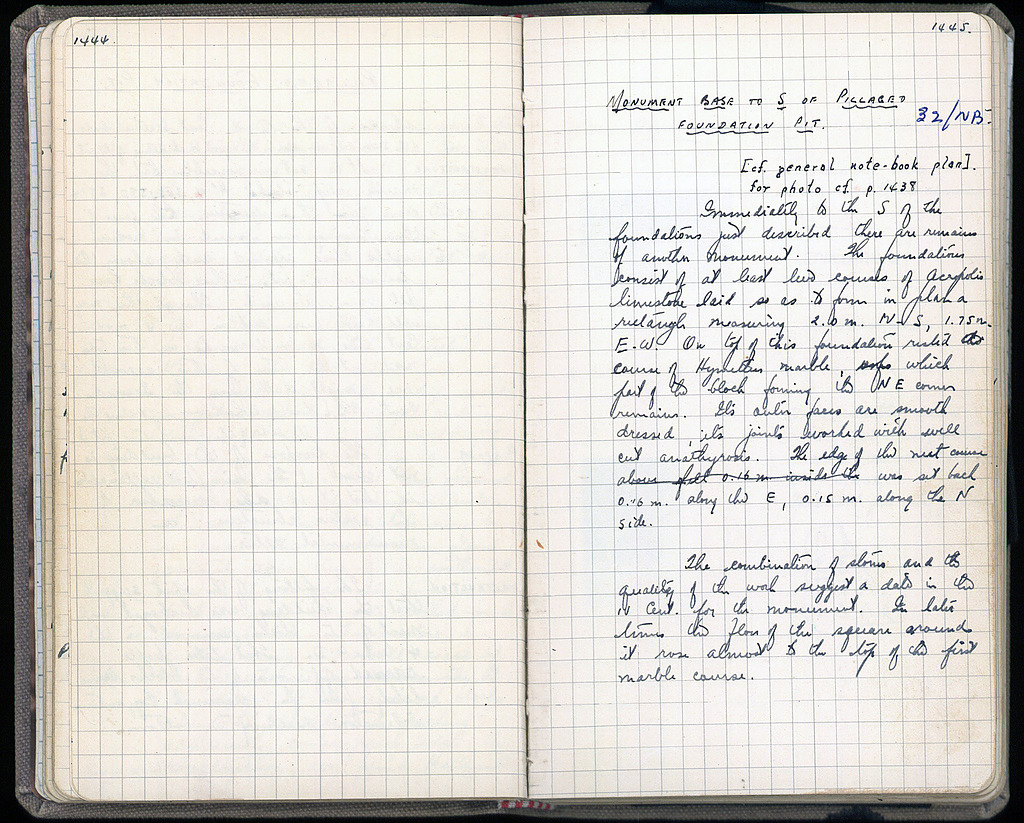 1444.
1445.
MONUMENT BASE TO S OF PILLAGED
FOUNDATION PIT.
32/NB.
[cf. general note-book plan].
for photo cf. p. 1438
Immediately to the S of the
foundations just described there are remains
of another monument. The foundations
consist of at least two courses of Acropolis
limestone laid so as to form in plan a
rectangle measuring 2.0 m. N-S, 1.75 m.
E.W. On top of this foundation rested
course of Hymettus marble, which
part of the block forming the NE corner
remains. Its outer faces are smooth
dressed, its joints worked with well
cut anathyrosis. The edge of the next course
above fell 0.16 m. inside the was set back
0.16 m. along the E, 0.15 m. along the N
side.
The combination of stones and the
quality of the work suggest a date in the
IV Cent. for the monument. In later
times the floor of the square around
it rose almost to the top of the first
marble course.